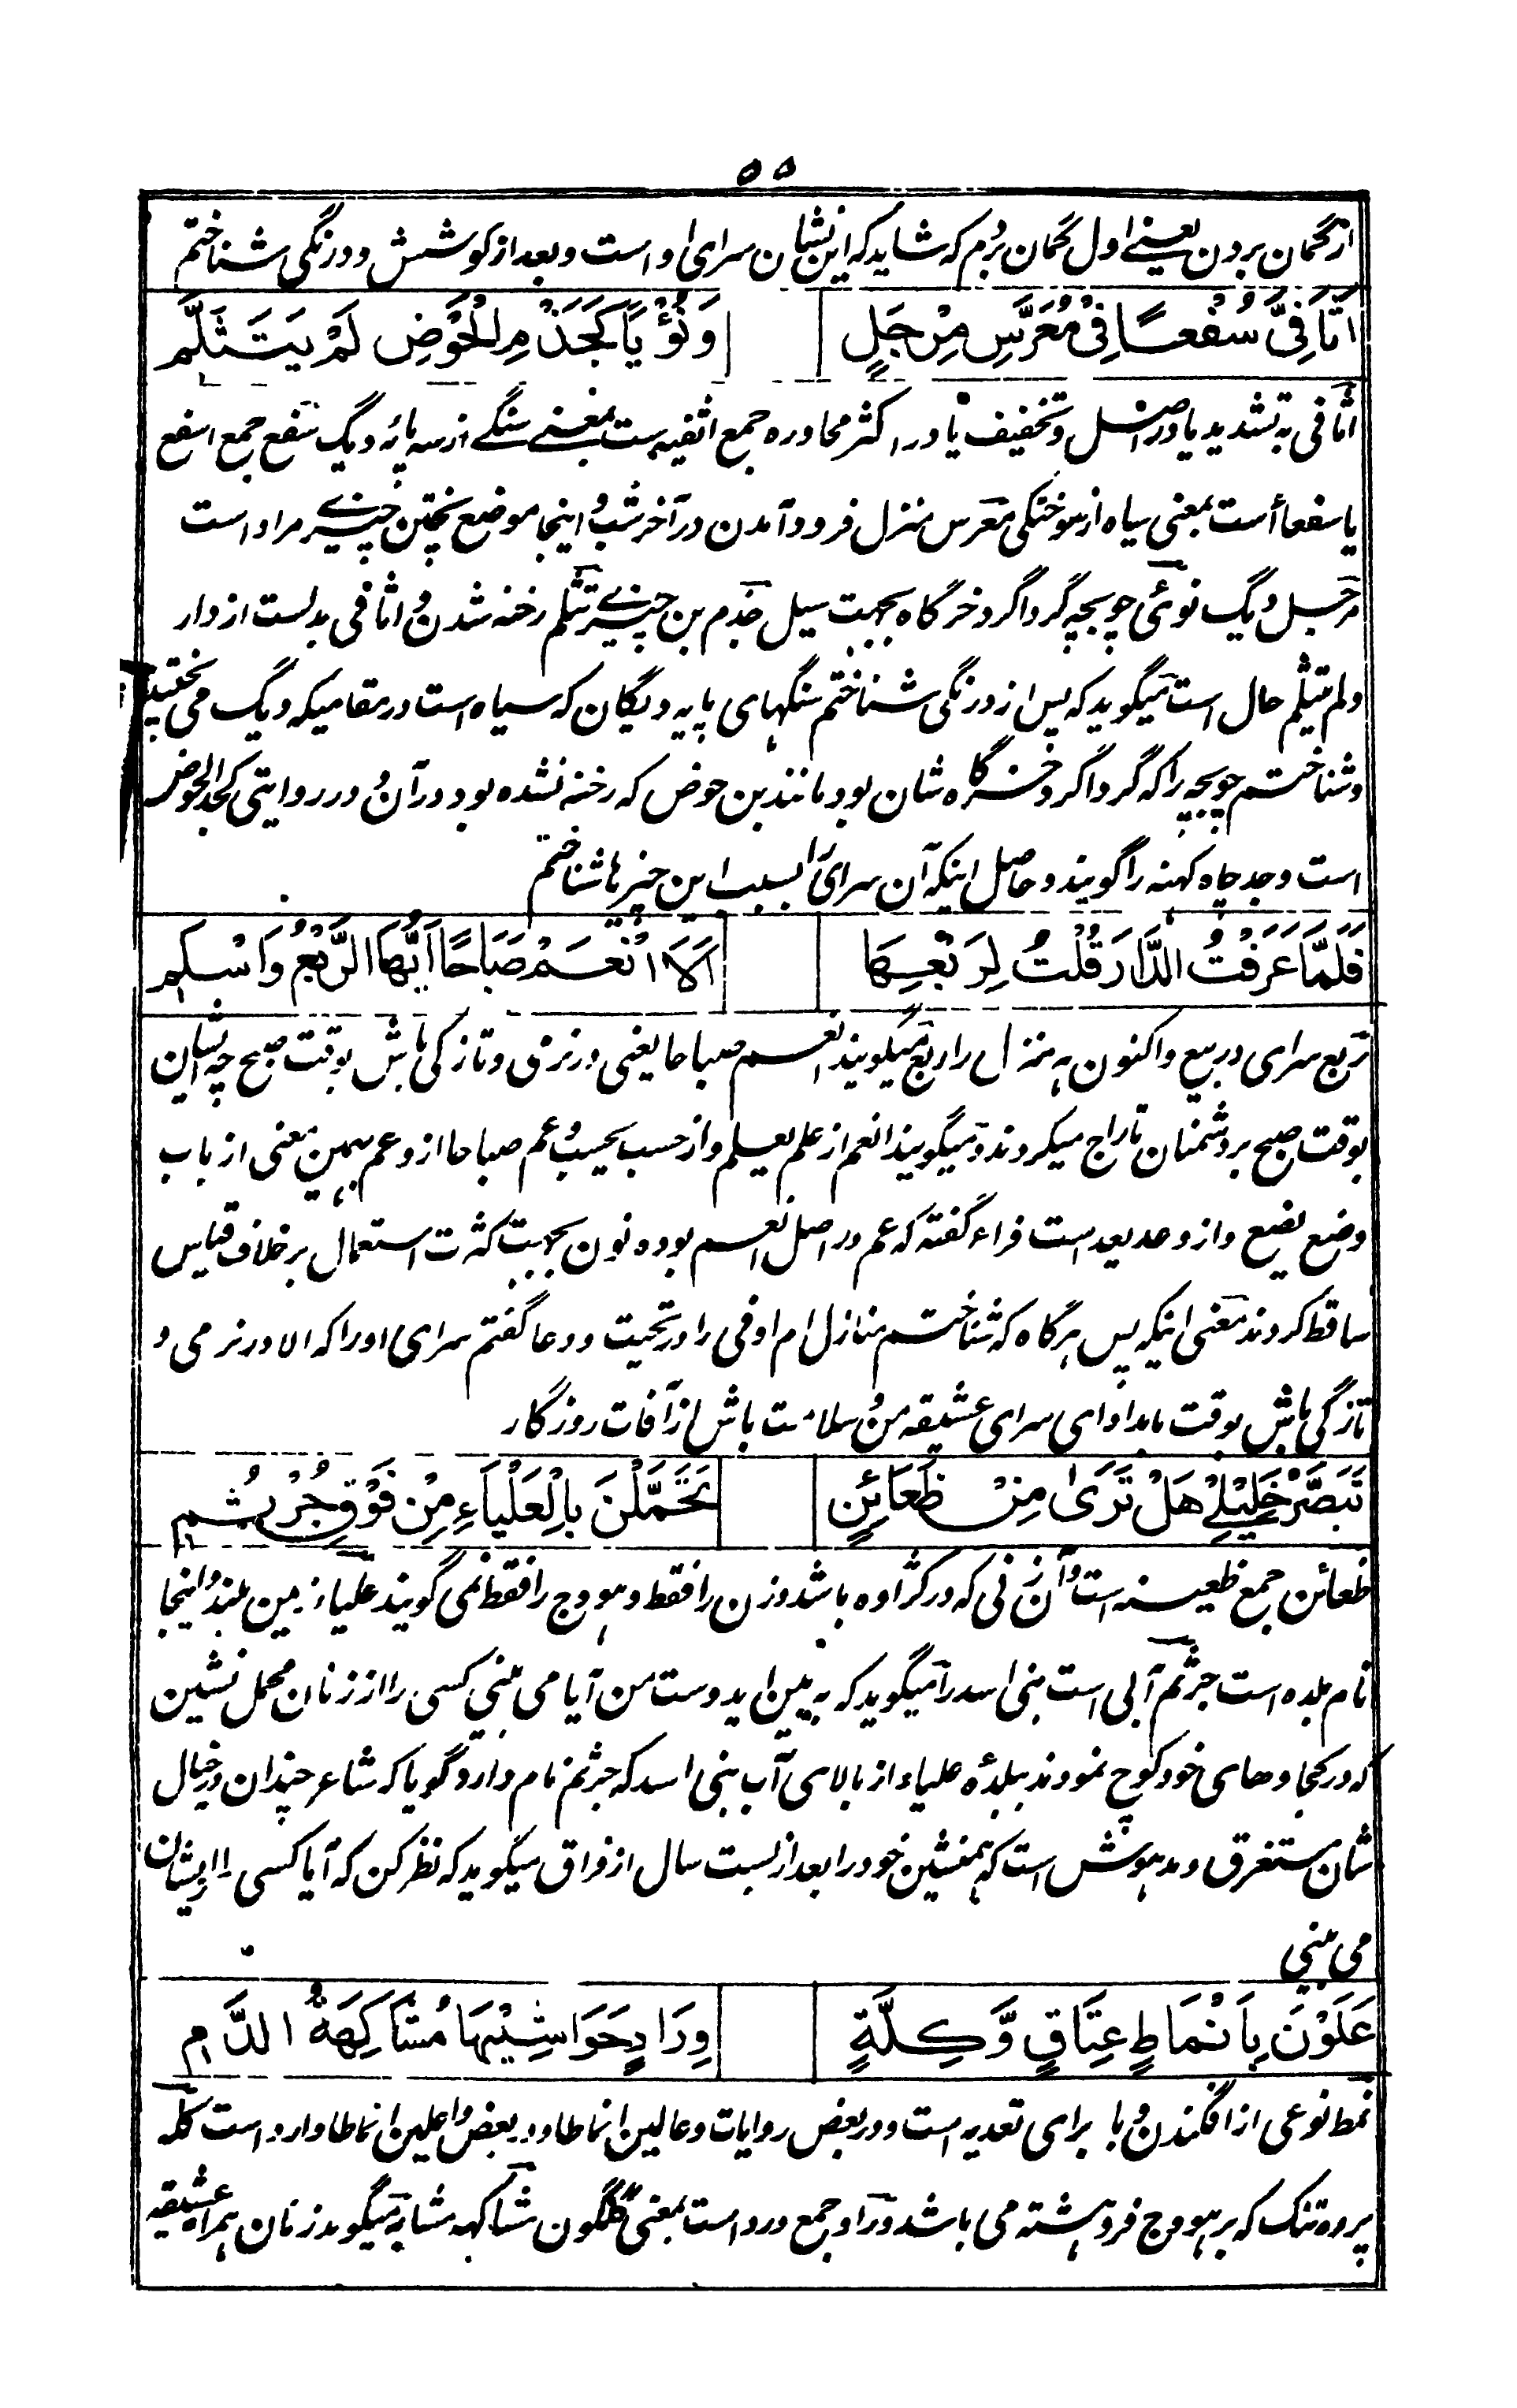 ۵۵
از گمان بردن یعنے اول گمان بردم که شاید که این نشان سرای او است و بعد از کوشش و درنگی شناختم
اَثَافِیَّ سُفْعًا فِیْ مُعَرَّسِ مِرْجَلٍ وَنُؤْیًا كَجَذْمِ الْحَوْضِ لَمْ یَتَثَلَّم
اثافی به تشدید یا در اصل و تخفیف یا در اکثر محاوره جمع اثفیه است بمعنے سنگے از سه پایٔه دیگ سفع جمع اسفع
یا سفعا أست بمعنی سیاه از سوختگی معرس منزل فرود آمدن در آخر شب و اینجا موضع پختن چیزے مراد است
مرجل دیگ نوئی چوبچه گرداگرد خرگاه بجهت سیل جذم بن چیزے تثلم رخنه شدن و اثافی بدلست از دار
ولم یتثلم حال است میگوید که پس از درنگی شناختم سنگهای پایه دیگان که سیاه است در مقامیکه دیگ می پختند
و شناختم چوبچه را که گرداگرد خرگاه شان بود مانند بن حوض که رخنه نشده بود در آن و در روایتی کجد الحوض
است و جد چاه کهنه را گویند و حاصل اینکه آن سرای را بسبب این چیزها شناختم
فَلَمَّا عَرَفْتُ الدَّارَ قُلْتُ لِرَبْعِهَا اَلَا انْعَمْ صَبَاحًا اَیُّهَا الرَّبْعُ وَاسْلَم
ربع سرای در ربیع و اکنون به منزل را ربع میگویند انعم صباحا یعنی در نرمی و تازگی باش بوقت صبح چه ایشان
بوقت صبح بر دشمنان تاراج میکردند و میگویند انعم از علم یعلم و از حسب یحسب و عم صباحا از وعم بهمین معنی از باب
وضع یضع و از وعد یعد است فراء گفته که عم در اصل انعم بوده نون بجهت کثرت استعمال بر خلاف قیاس
ساقط کردند معنی اینکه پس هرگاه که شناختم منازل ام اوفی را در تحیت و دعا گفتم سرای او را که الا در نرمی و
تازگی باش بوقت بامداد ای سرای عشیقه من و سلامت باش از آفات روزگار
تَبَصَّرْ خَلِیْلِےْ هَلْ تَرَیٰ مِنْ ظَعَائِنٍ تَحَمَّلْنَ بِالْعَلْیَاءِ مِنْ فَوْقِ جُرْثُمِ
ظعائن جمع ظعینه است و آن زنی که در کژاوه باشد و زن را فقط و هودج را فقط نمی گویند علیاء زمین بلند و اینجا
نام بلده است جرثم آبی است بنی اسد را میگوید که به بین اید وست من آیا می بینی کسی را از زنان محمل نشین
که در کجاوهای خود کوچ نمودند ببلدٔه علیاء از بالای آب بنی اسد که جرثم نام دارد گویا که شاعر چندان در خیال
شان مستغرق و مدهوش است که همنشین خود را بعد از بست سال از فراق میگوید که نظر کن که آیا کسی را ایشان
می بینی
عَلَوْنَ بِاَنْمَاطٍ عِتَاقٍ وَّكِلَّةٍ وِرَادٍ حَوَاشِیْهَا مُشَاكِهَةُ الدَّامِ
نمط نوعی از افگندن و با برای تعدیه است و در بعض روایات وعالین انماطا و در بعض واعلین انماطا وارد است کله
پرده تنک که بر هودج فرو هشته می باشد وراد جمع ورد است بمعنی گلگون مشاکهه مشابه میگوید زنان همراه عشیقه